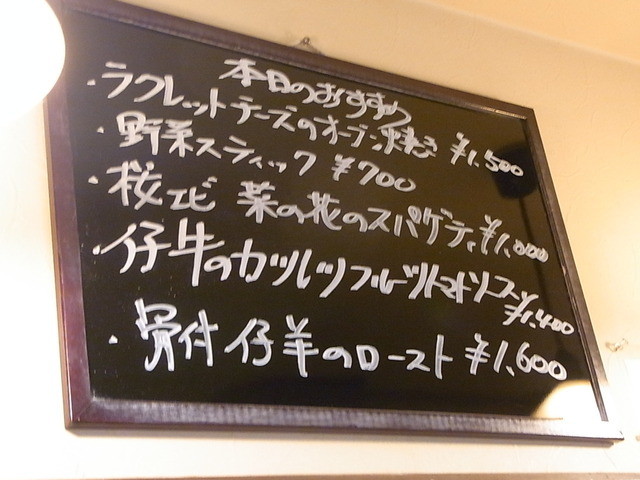 本日のおすすめ
・ラクレットチーズのオーブン焼き ¥1,500
・野菜スティック ¥700
・桜エビ 菜の花のスパゲティ ¥1,000
・仔牛のカツレツフルーツトマトソース ¥1,400
・骨付仔羊のロースト ¥1,600